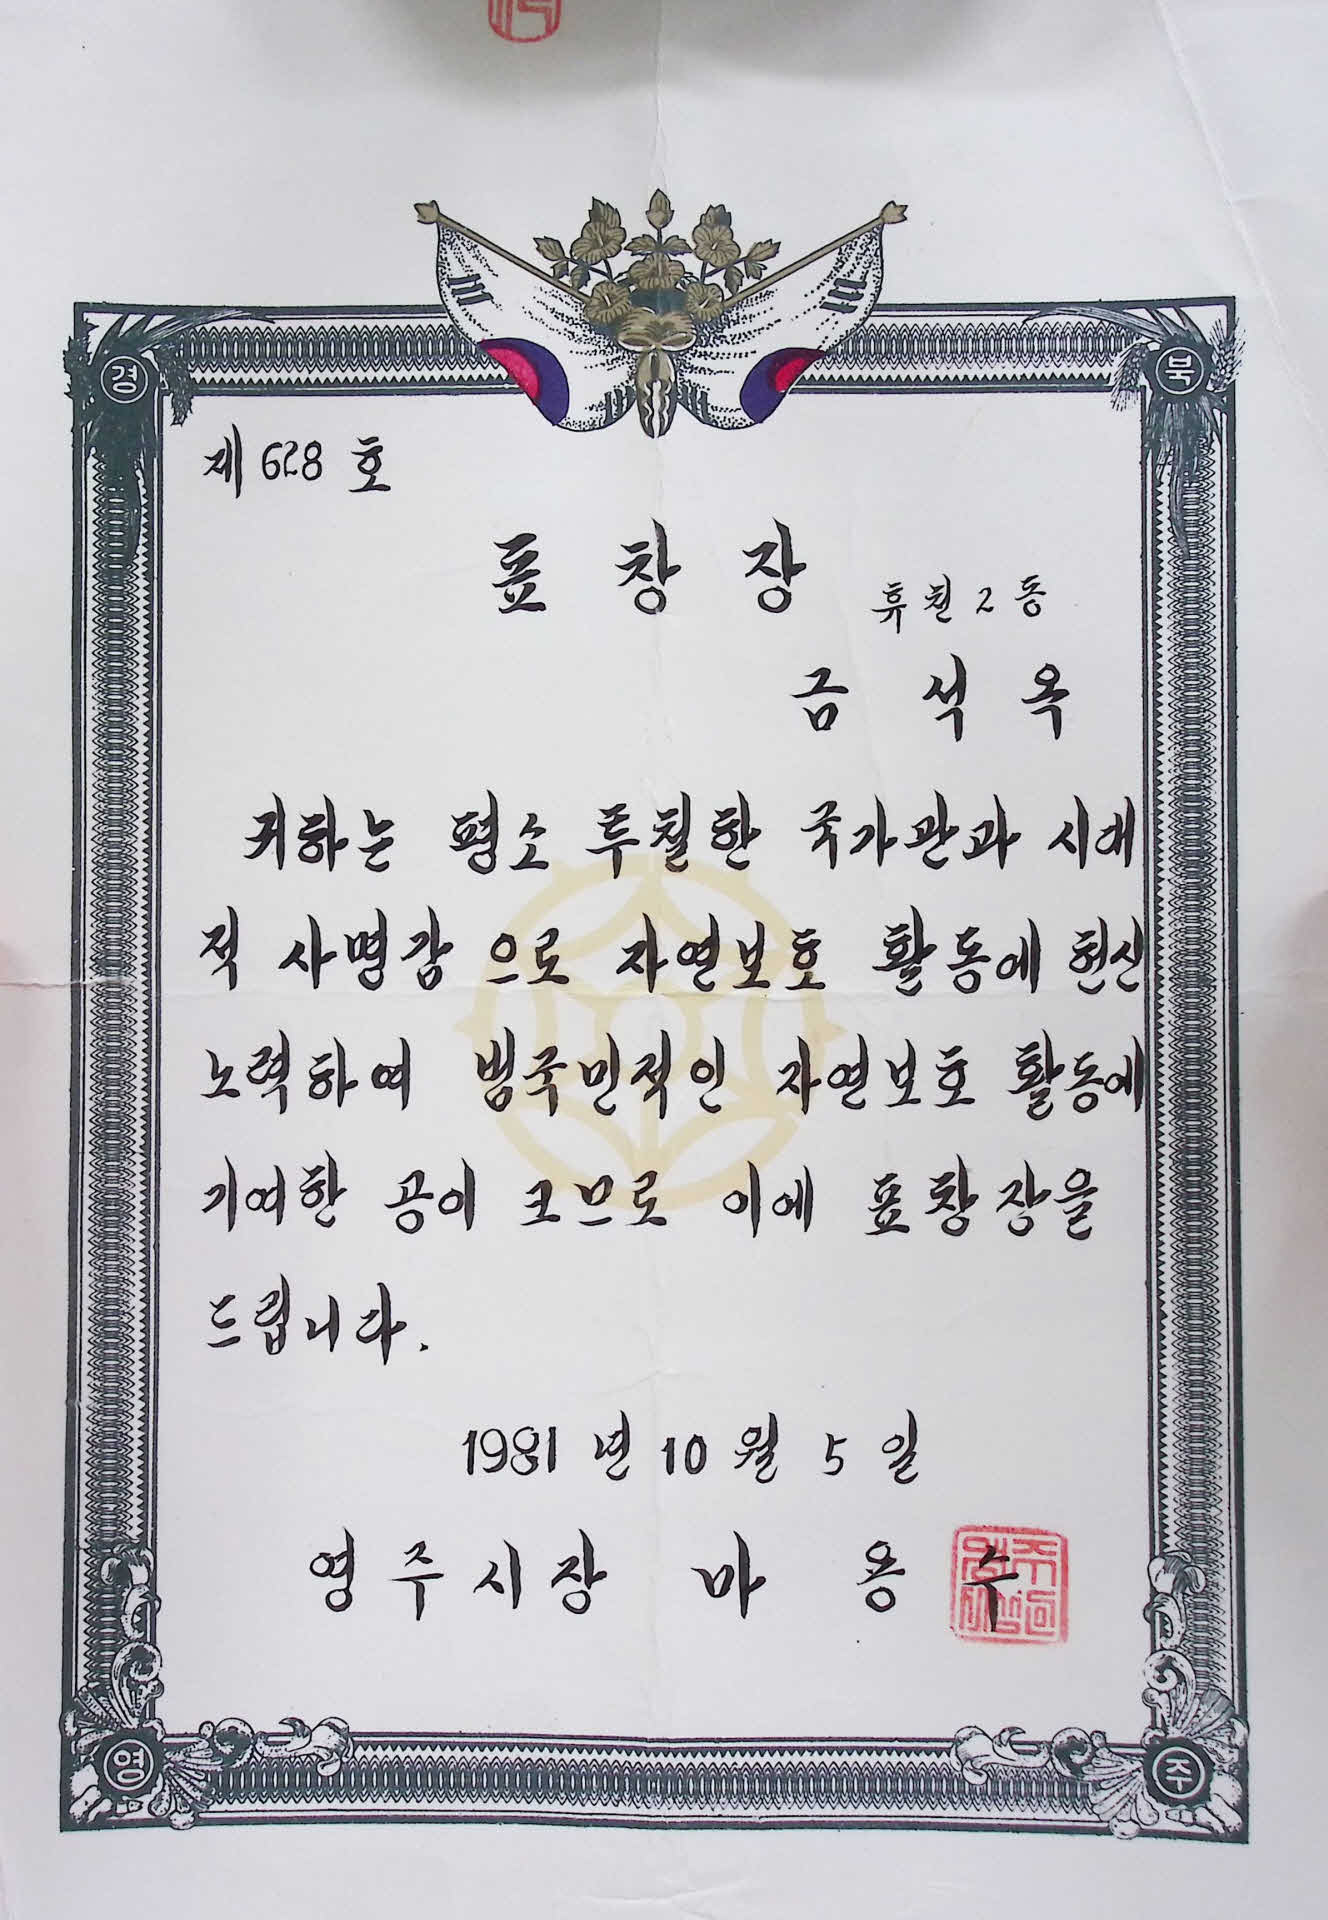 경 북
제 628 호
표 창 장
휴천 2 동
금 석 옥
귀하는 평소 투철한 국가관과 시대
적 사명감 으로 자연보호 활동에 헌신
노력하여 범국민적인 자연보호 활동에
기여한 공이 크므로 이에 표창장을
드립니다.
1981 년 10 월 5 일
영주시장 마 용 수
영 주